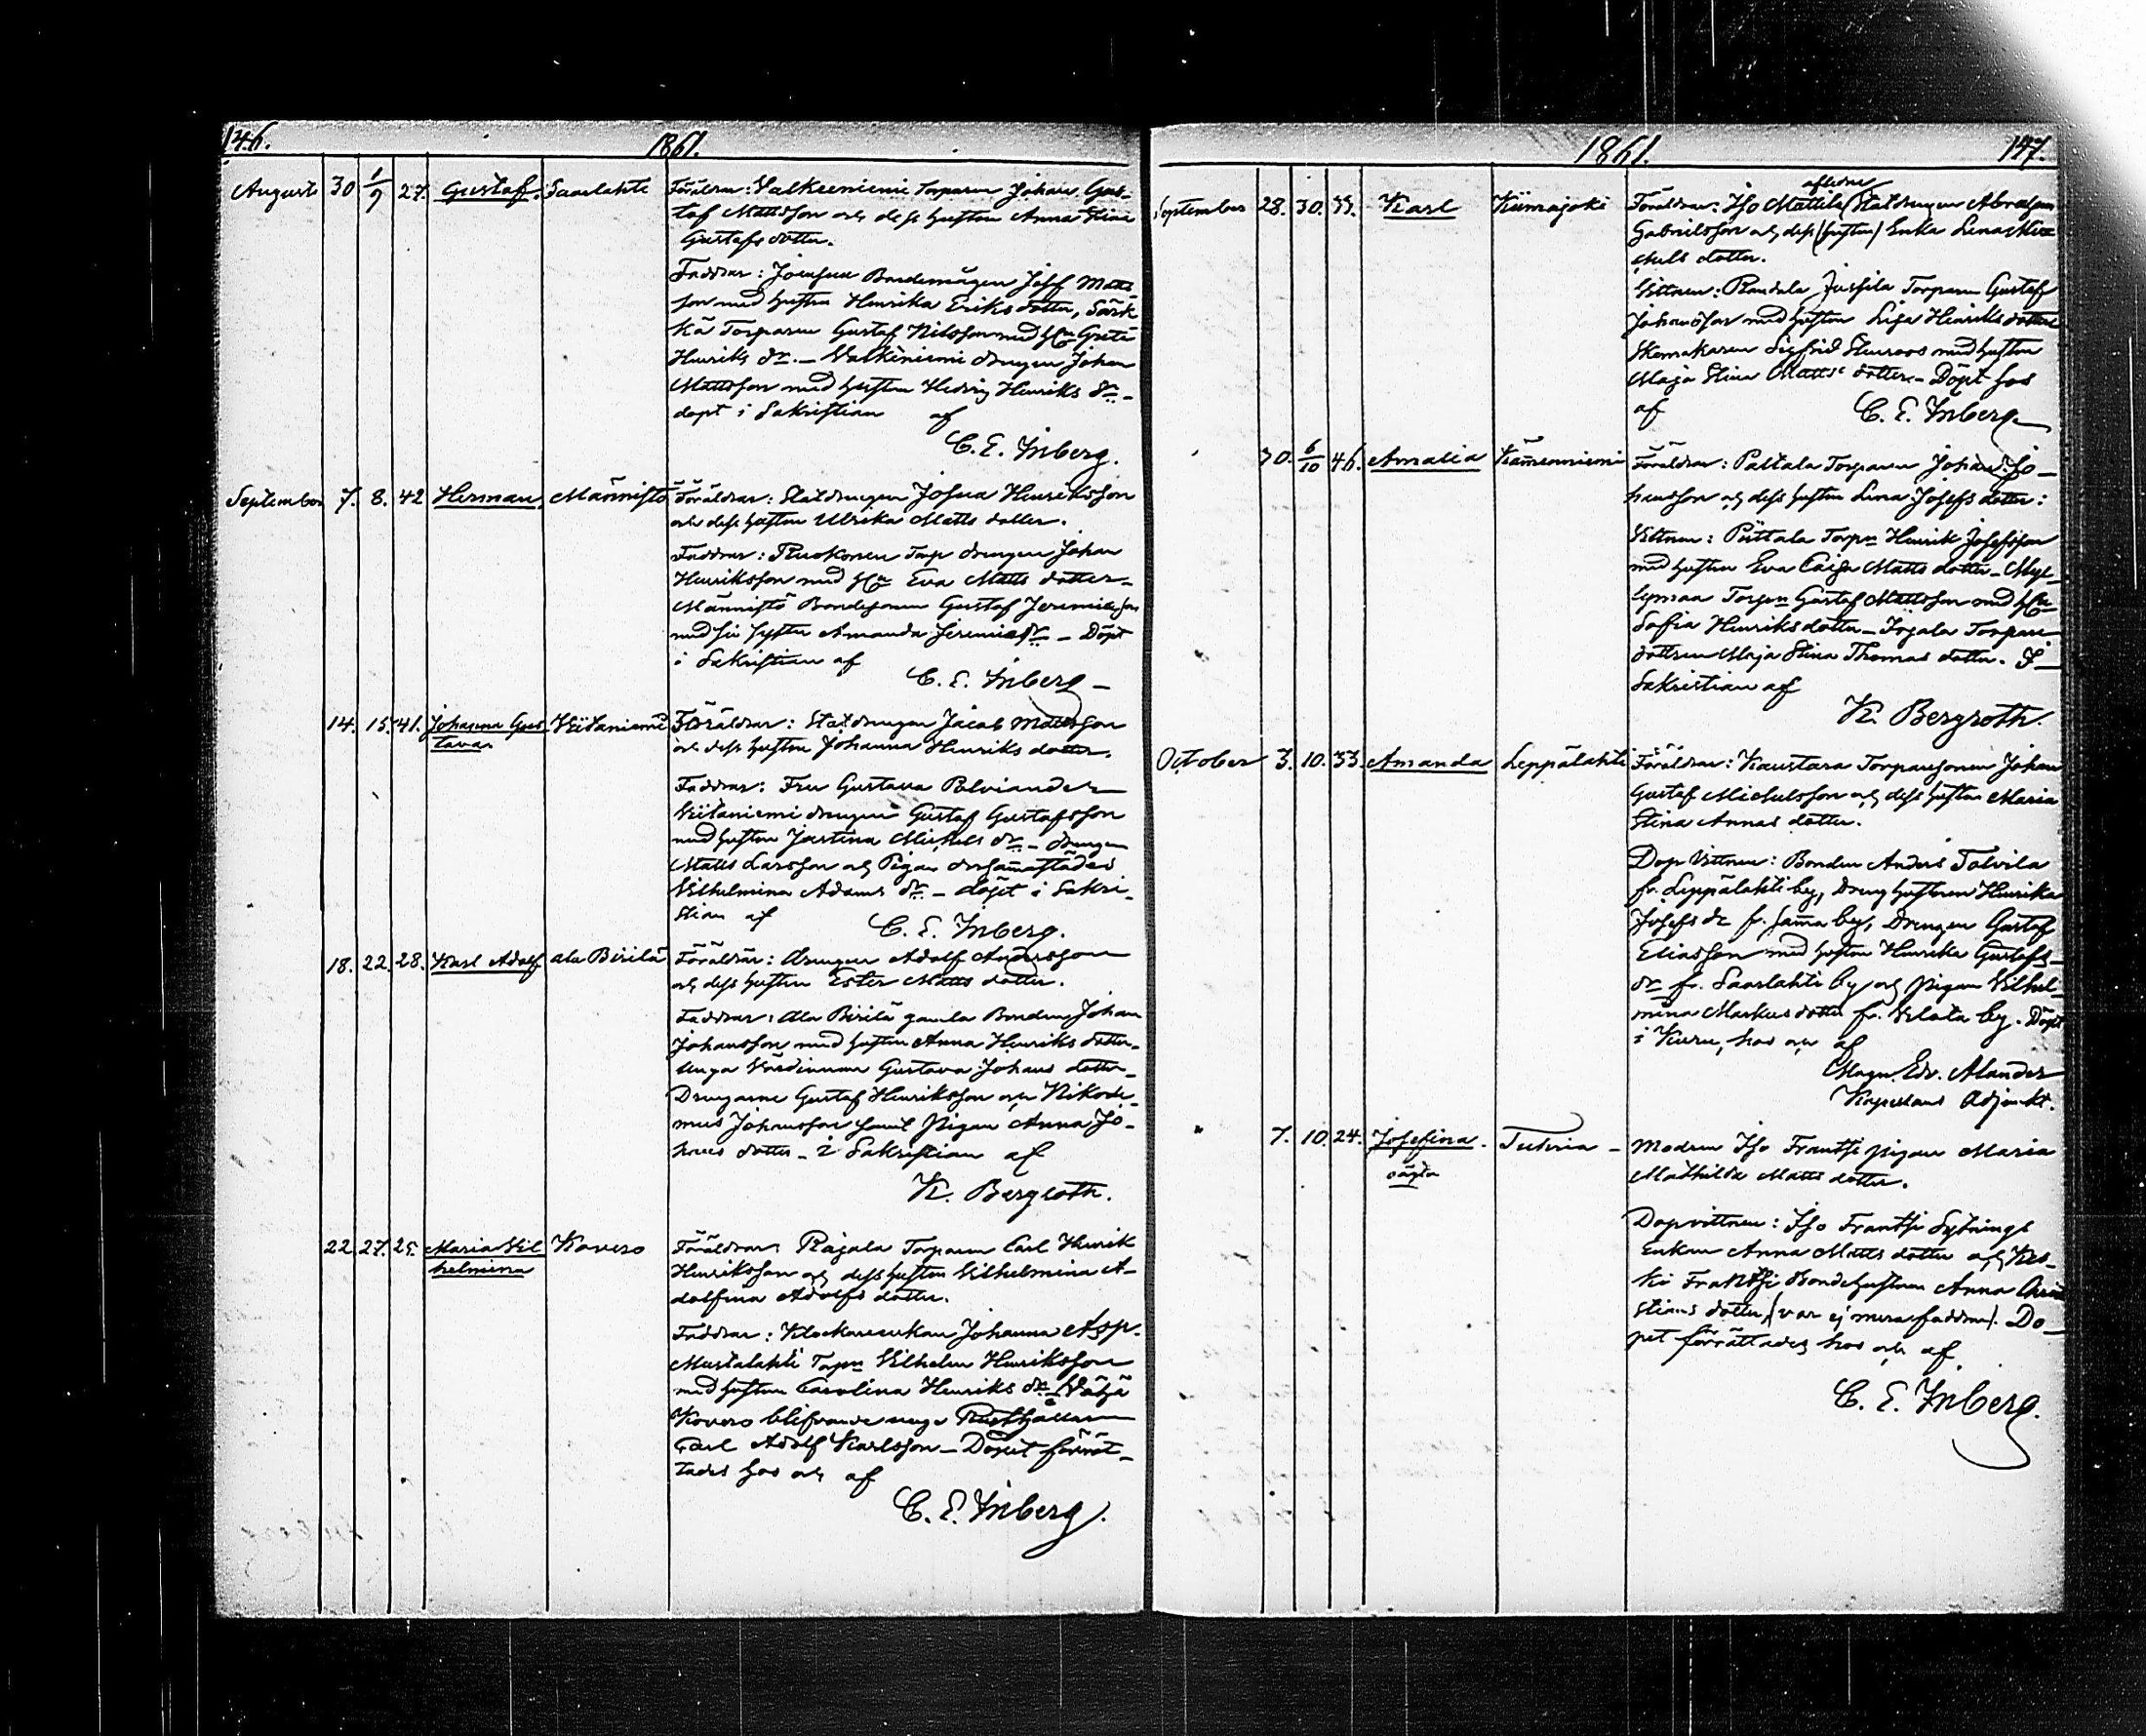 146. 1861.
Augusti 30 1/9 27. Gustaf. Saarlahti Föräldrar: Valkeeniemi Torparen Johan Gus-
taf Mattsson och dess hustru Anna Stina
Gustafs dotter.
Faddrar: Bondemågen Josef Matts
son med hustru Henrika Eriks dotter, Särk
kä Torparen Gustaf Nilsson med Greta
Henriks dr. – Valkeniemi drengen Johan
Mattsson med hustru Hedvig Henriks dr. –
döpt i Sakristian af
C. E. Inberg.
September 7. 8. 42 Herman. Männistö Föräldrar: Statdrengen Josua Henriksson
och dess hustru Ulrika Matts dotter.
Faddrar: Ruokonen Torp drengen Johan
Henriksson med Eva Matts dotter –
Männistö Bondesonen Gustaf Jeremiasson
med sin syster Amanda Jeremiædr – Döpt
i Sakristian af
C. E. Inberg –
14. 15. 41. Johanna Gus Viitaniemi Föräldrar: Statdrengen Jacob Mattsson
tava. och dess hustru Johanna Henriks dotter.
Faddrar: Fru Gustava Polviander
Viitaniemi drengen Gustaf Gustafsson
med hustru Justina Michels dr. – drengen
Matts Larsson och Pigan
Vilhelmina Adams dr. – döpt i Sakri-
stian af
C. E. Inberg.
18. 22. 28. Karl Adolf Ala Birilä Föräldrar: drengen Adolf Andersson
och dess hustru Ester Matts dotter.
Faddrar: Ala Birilä gamla Bonden Johan
Johansson med hustru Anna Henriks dotter –
Unga Värdinnan Gustava Johans dotter –
Drengarne Gustaf Henriksson och Nikode-
mus Johansson samt Pigan Anna Jo-
hans dotter – i Sakristian af
K. Bergroth.
22. 27. 25. Maria Vil Kovero Föräldrar: Rajala Torparen Carl Henrik
helmina Henriksson och dess hustru Vilhelmina A-
dolfina Adolfs dotter.
Faddrar: Klockareenkan Johanna Asp.
Mustalahti Torpn Vilhelm Henriksson
med hustrun Carolina Henriks dr.
Kovero blifvande unge Rusthållaren
Carl Adolf Karlsson – Dopet förrät-
tades hos och af
C. E. Inberg.
1861. 147.
September 28. 30. 33. Karl Kiimajoki Föräldrar: Iso Mattila (aflidne Statdrengen Abraham
Gabrielsson och dess (hustru) Enka Lena Mi
chels dotter.
Vittnen: Randala Jussila Torparen Gustaf
Johansson med hustru Lisa Henriks dotter
Skomakaren Sigfrid Stenroos med hustru
Maja Stina Matts dotter. – Döpt hos
af C. E. Inberg
30. 6/10 46. Amalia Kämmenniemi Föräldrar: Paltala Torparen Johan Jo-
hansson och dess hustru Lena Josefs dotter:
Vittnen: Piittala Torpn Henrik Josefsson
med hustru Eva Caisa Matts dotter – Myl-
lymaa Torpn Gustaf Mattsson med
Sofia Henriks dotter – Torpare
dottren Maja Stina Thomas dotter. I
Sakristian af
K. Bergroth.
October 3. 10. 33. Amanda Leppälahti Föräldrar: Kaustara Torparsonen Johan
Gustaf Michelsson och dess hustru Maria
Stina Annas dotter.
Dop Vittnen: Bonden Anders Tolvila
fr. Leppälahti by, Dreng hustrun Henrika
Josefs dr fr. samma by, Drengen Gustaf
Eliasson med hustru Henrika Gustafs-
dr fr. Saarlahti by och pigan Vilhel-
mina Markus dotter fr. Velata by. Döpt
i Kuru, hos och af
Magn. Edv. Alander
Kapellans Adjunkt.
7. 10. 24. Josefina. Tutiria – Modren Iso Frantsi pigan Maria
oägta Mathilda Matts dotter.
Dopvittnen: Iso Frantsi Sytnings
Enkan Anna Matts dotter och Kes-
ki Frantsi Bondehustrun Anna Chri
stians dotter, (var ej mera faddrar). Do-
pet förrättades hos och af
C. E. Inberg.